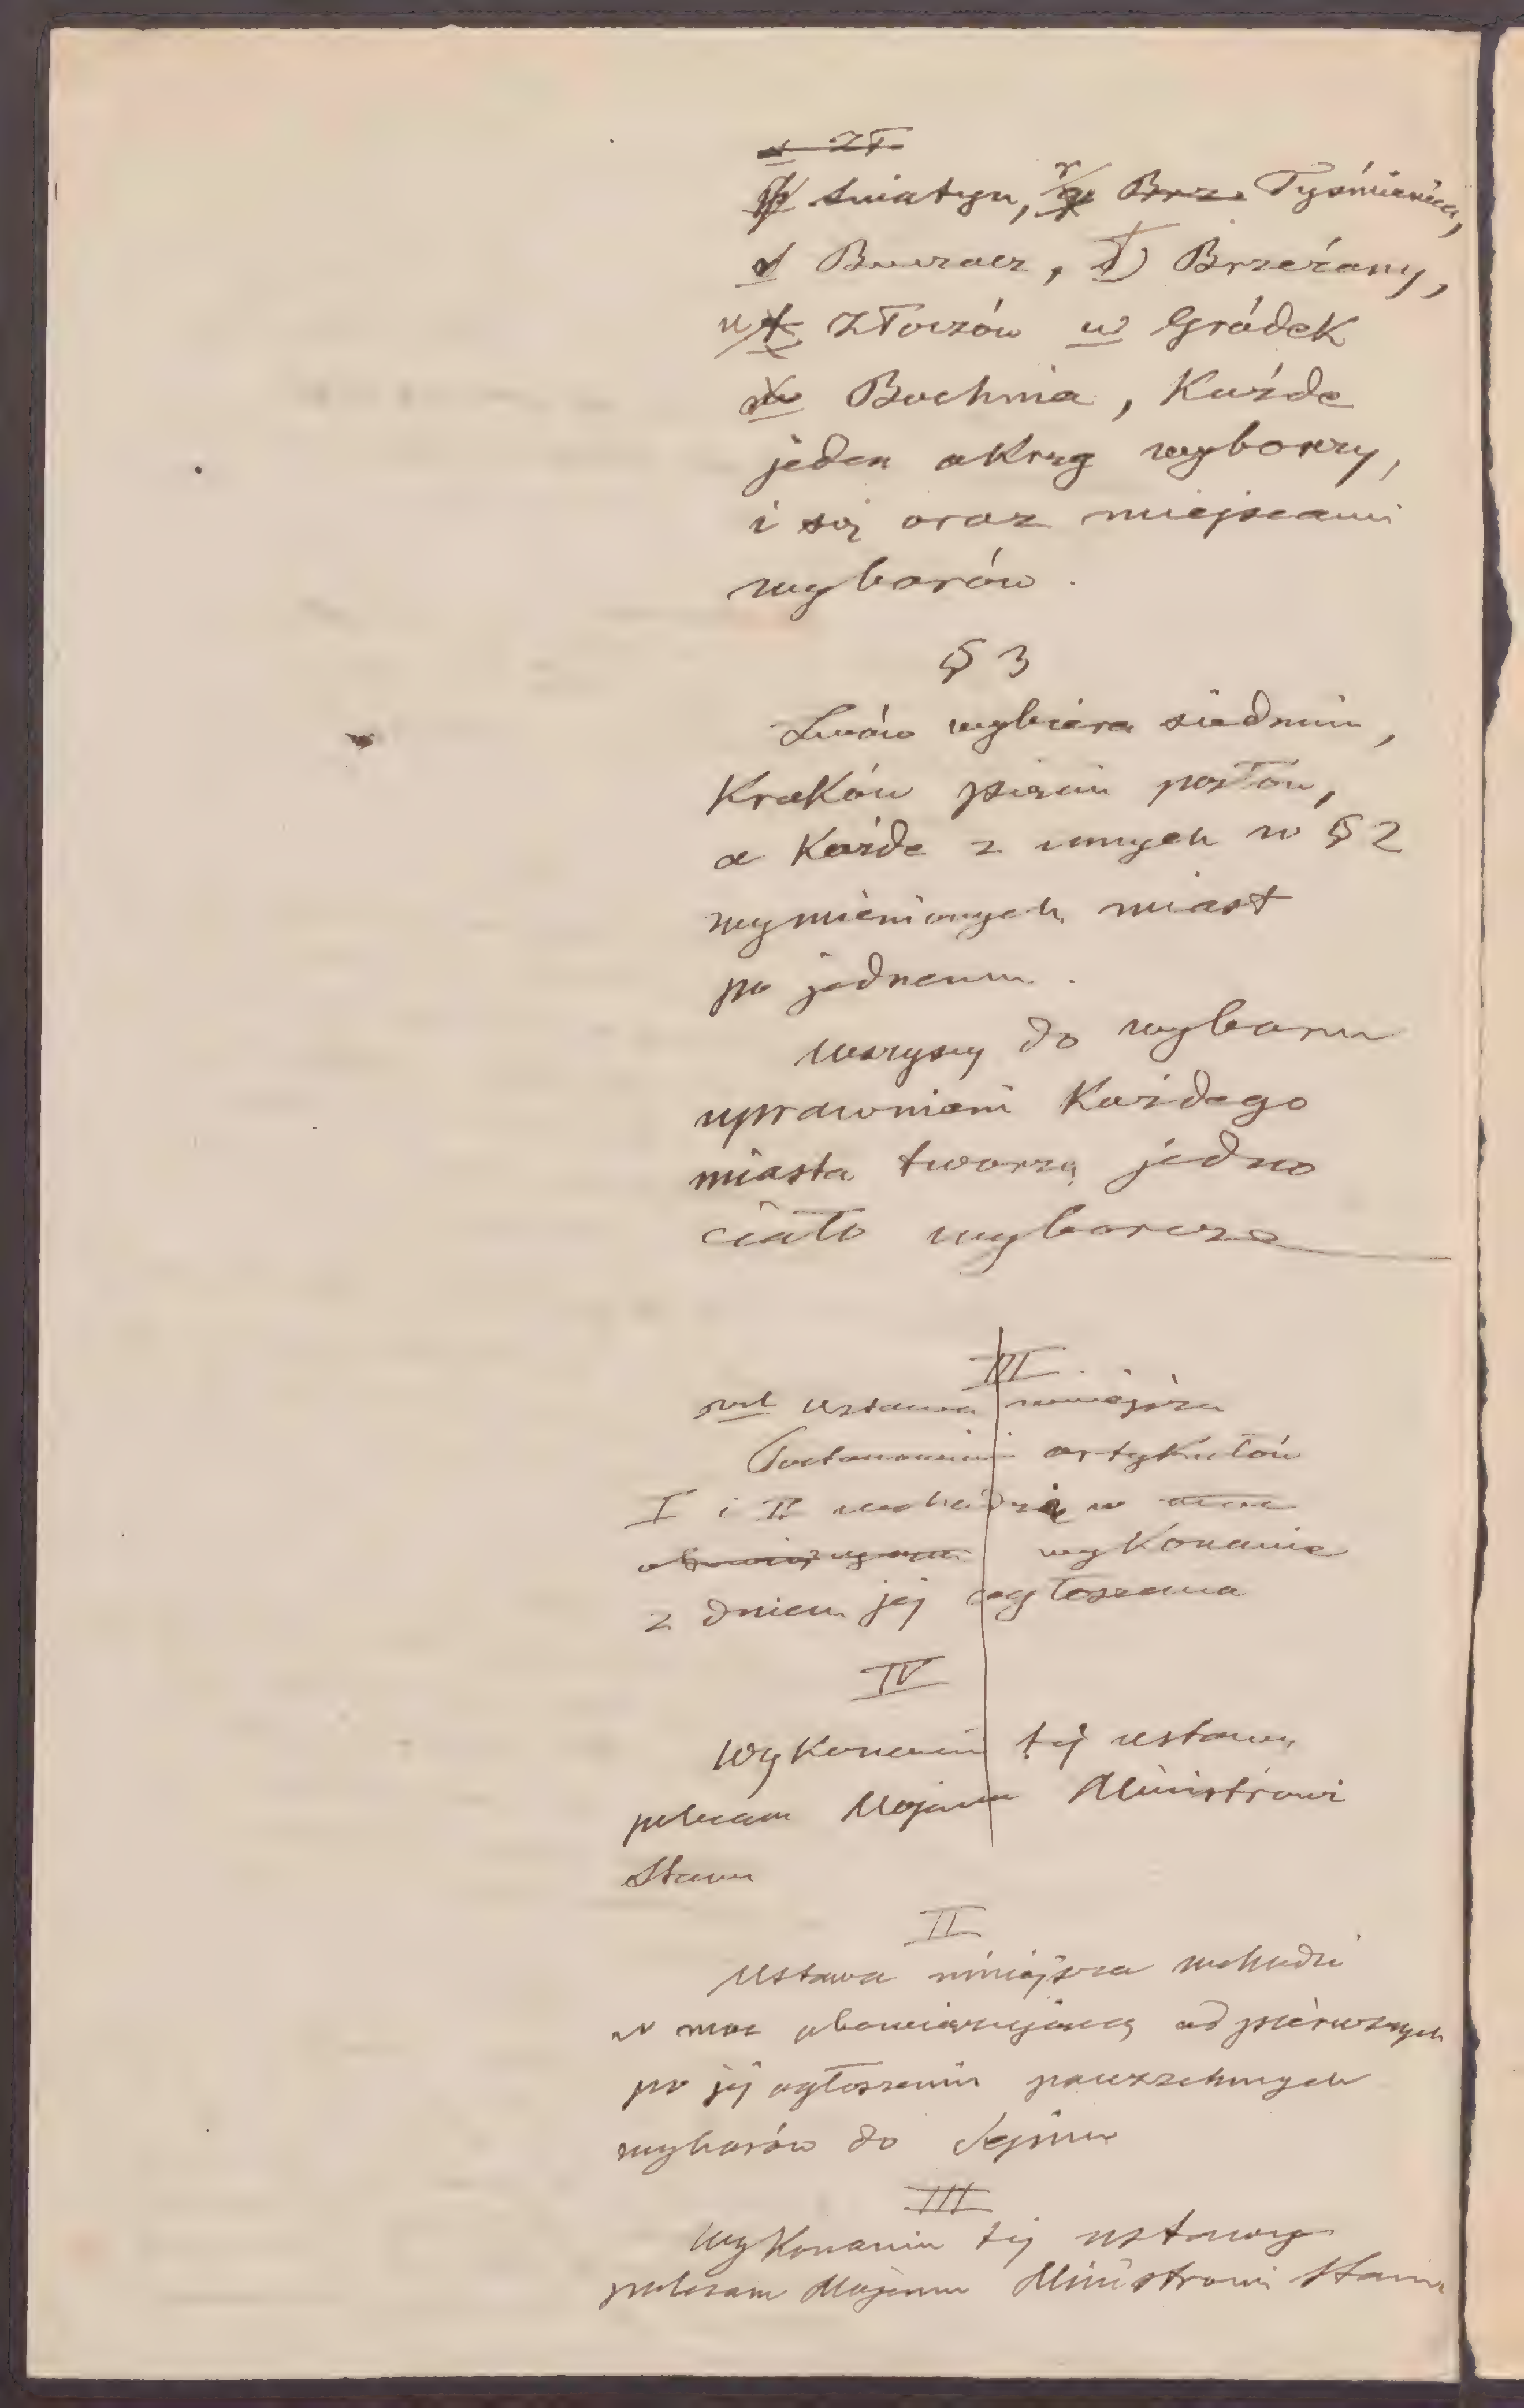 s Zł.
Śniatyn, r Brz. Tyśmienica,
s Buczacz, t) Brzeżany,
u Złoczów w Gródek
Bochnia, Każde
jeden okrąg wyborczy,
i są oraz miejscami
wyborów.
§ 3
Lwów wybiera siedmiu,
Kraków pięciu posłów,
a Każde z innych w § 2
wymienionych miast
po jednemu.
Wszyscy do wyboru
uprawnieni Każdego
miasta tworzą jedno
ciało wyborcze
III
Ustawa niniejsza
Postanowienia artykułów
I i II wchodzą w
obowiązującą wykonanie
z dniem jej ogłoszenia
IV
Wykonanie tej ustawy
polecam Mojemu Ministrowi
Stanu
II
Ustawa niniejsza wchodzi
w moc obowiązującą od pierwszych
po jej ogłoszeniu powszechnych
wyborów do Sejmu
III
Wykonanie tej ustawy
polecam Mojemu Ministrowi Stanu